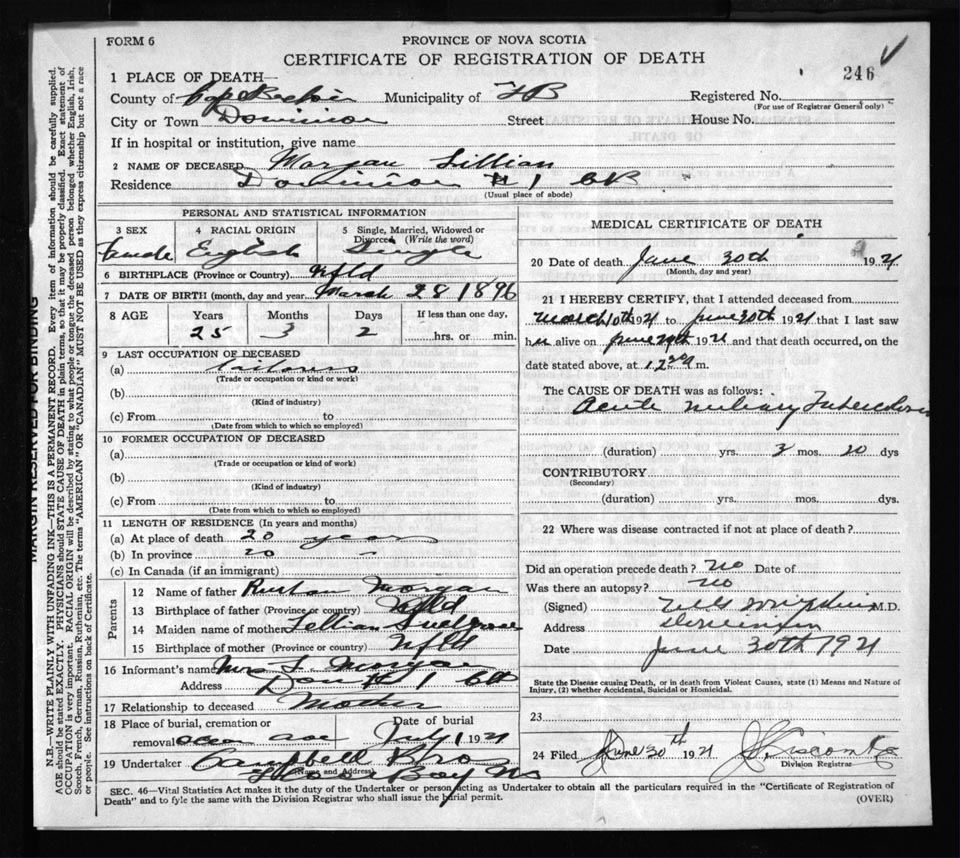 FORM 6
PROVINCE OF NOVA SCOTIA
CERTIFICATE OF REGISTRATION OF DEATH
246
1 PLACE OF DEATH—
County of Cape Breton Municipality of GB Registered No.
(For use of Registrar General only)
City or Town Dominion Street House No.
If in hospital or institution, give name
2 NAME OF DECEASED Morgan Lillian
Residence Dominion #1 CB
(Usual place of abode)
PERSONAL AND STATISTICAL INFORMATION
3 SEX 4 RACIAL ORIGIN 5 Single, Married, Widowed or
Divorced (Write the word)
female English Single
6 BIRTHPLACE (Province or Country) Nfld
7 DATE OF BIRTH (month, day and year) March 28 1896
8 AGE Years Months Days If less than one day,
25 3 2 hrs. or min.
9 LAST OCCUPATION OF DECEASED
(a) tailoress
(Trade or occupation or kind or work)
(b)
(Kind of industry)
(c) From to
(Date from which to which so employed)
10 FORMER OCCUPATION OF DECEASED
(a)
(Trade or occupation or kind of work)
(b)
(Kind of industry)
(c) From to
(Date from which to which so employed)
11 LENGTH OF RESIDENCE (In years and months)
(a) At place of death 20 years
(b) In province 20 -
(c) In Canada (if an immigrant)
Parents
12 Name of father Morgan
13 Birthplace of father (Province or country) Nfld
14 Maiden name of mother Lillian
15 Birthplace of mother (Province or country) Nfld
16 Informant's name Mrs Morgan
Address Dom #1 CB
17 Relationship to deceased Mother
18 Place of burial, cremation or Date of burial
removal July 1 1921
19 Undertaker Campbell Bros
(Name and Address)
Glace Bay NS
MEDICAL CERTIFICATE OF DEATH
20 Date of death June 30th 1921
(Month, day and year)
21 I HEREBY CERTIFY, that I attended deceased from
March 10th 1921 to June 30th 1921 that I last saw
her alive on June 29th 1921 and that death occurred, on the
date stated above, at m.
The CAUSE OF DEATH was as follows:
Acute miliary Tuberculosis
(duration) yrs. 3 mos. 20 dys
CONTRIBUTORY
(Secondary)
(duration) yrs. mos. dys.
22 Where was disease contracted if not at place of death?
Did an operation precede death? no Date of
Was there an autopsy? no
(Signed) M.D.
Address Dominion
Date June 30th 1921
State the Disease causing Death, or in death from Violent Causes, state (1) Means and Nature of
Injury, (2) whether Accidental, Suicidal or Homicidal.
23
24 Filed June 30th 1921
Division Registrar
SEC. 46—Vital Statistics Act makes it the duty of the Undertaker or person acting as Undertaker to obtain all the particulars required in the "Certificate of Registration of
Death" and to fyle the same with the Division Registrar who shall issue the burial permit.
(OVER)
MARGIN RESERVED FOR BINDING
N.B.—WRITE PLAINLY WITH UNFADING INK—THIS IS A PERMANENT RECORD. Every item of information should be carefully supplied.
AGE should be stated EXACTLY. PHYSICIANS should STATE CAUSE OF DEATH in plain terms, so that it may be properly classified. Exact statement of
OCCUPATION is very important. RACIAL ORIGIN will be described by stating to what people or tongue the deceased person belonged whether English, Irish,
Scotch, French, German, Russian, Ruthenian, etc. The terms "AMERICAN" OR "CANADIAN" MUST NOT BE USED as they express citizenship but not a race
or people. See instructions on back of Certificate.